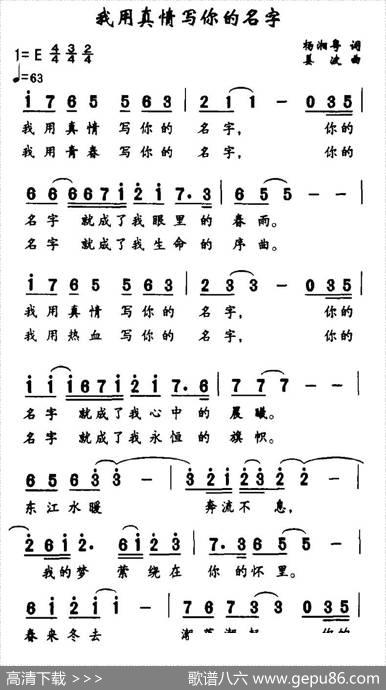 我用真情写你的名字
1=E 4/4 3/4 2/4
杨湘粤 词
♩=63
姜波 曲
i 7 6 5 5 6 3 | 2 1 1 - 0 3 5 |
我用真情 写你的 名字, 你的
我用青春 写你的 名字, 你的
6 6 6 6 7 i 2 i 7. 3 | 6 5 5 - - |
名字 就成了我眼里的 春雨。
名字 就成了我生命的 序曲。
i 7 6 5 5 6 3 | 2 3 3 - 0 3 5 |
我用真情 写你的 名字, 你的
我用热血 写你的 名字, 你的
i i i 6 7 i 2 i 7. 6 | 7 7 7 - - |
名字 就成了我心中的 晨曦。
名字 就成了我永恒的 旗帜。
6 5 6 3 3 - | 3 2 i 2 3 2 - |
东江水暖 奔流不息,
2 6 i 2. 6 i 2 i 7. | 7. 3 6 5 3 5 - |
我的梦 萦绕在 你的怀里。
6 i 2 i i - | 7 6 7 3 3 0 3 5 |
春来冬去 你的
高清下载 >>>
歌谱八六 www.gepu86.com